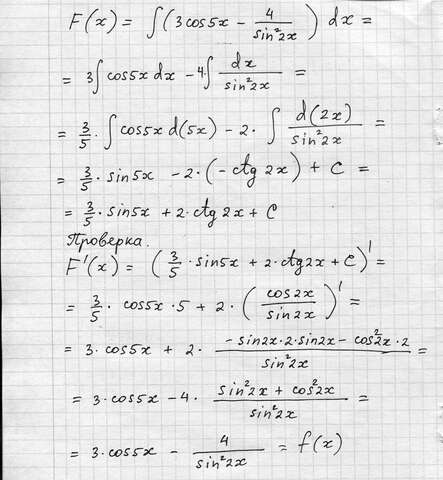 F(x) = ∫(3cos5x − 4/sin²2x) dx =
= 3∫cos5x dx − 4·∫ dx/sin²2x =
= 3/5 · ∫cos5x d(5x) − 2 · ∫ d(2x)/sin²2x =
= 3/5 · sin5x − 2·(−ctg 2x) + C =
= 3/5 · sin5x + 2·ctg 2x + C
Проверка.
F'(x) = (3/5 · sin5x + 2·ctg2x + C)' =
= 3/5 · cos5x · 5 + 2 · (cos2x/sin2x)' =
= 3·cos5x + 2 · (−sin2x·2·sin2x − cos²2x·2)/sin²2x =
= 3·cos5x − 4 · (sin²2x + cos²2x)/sin²2x =
= 3·cos5x − 4/sin²2x = f(x)